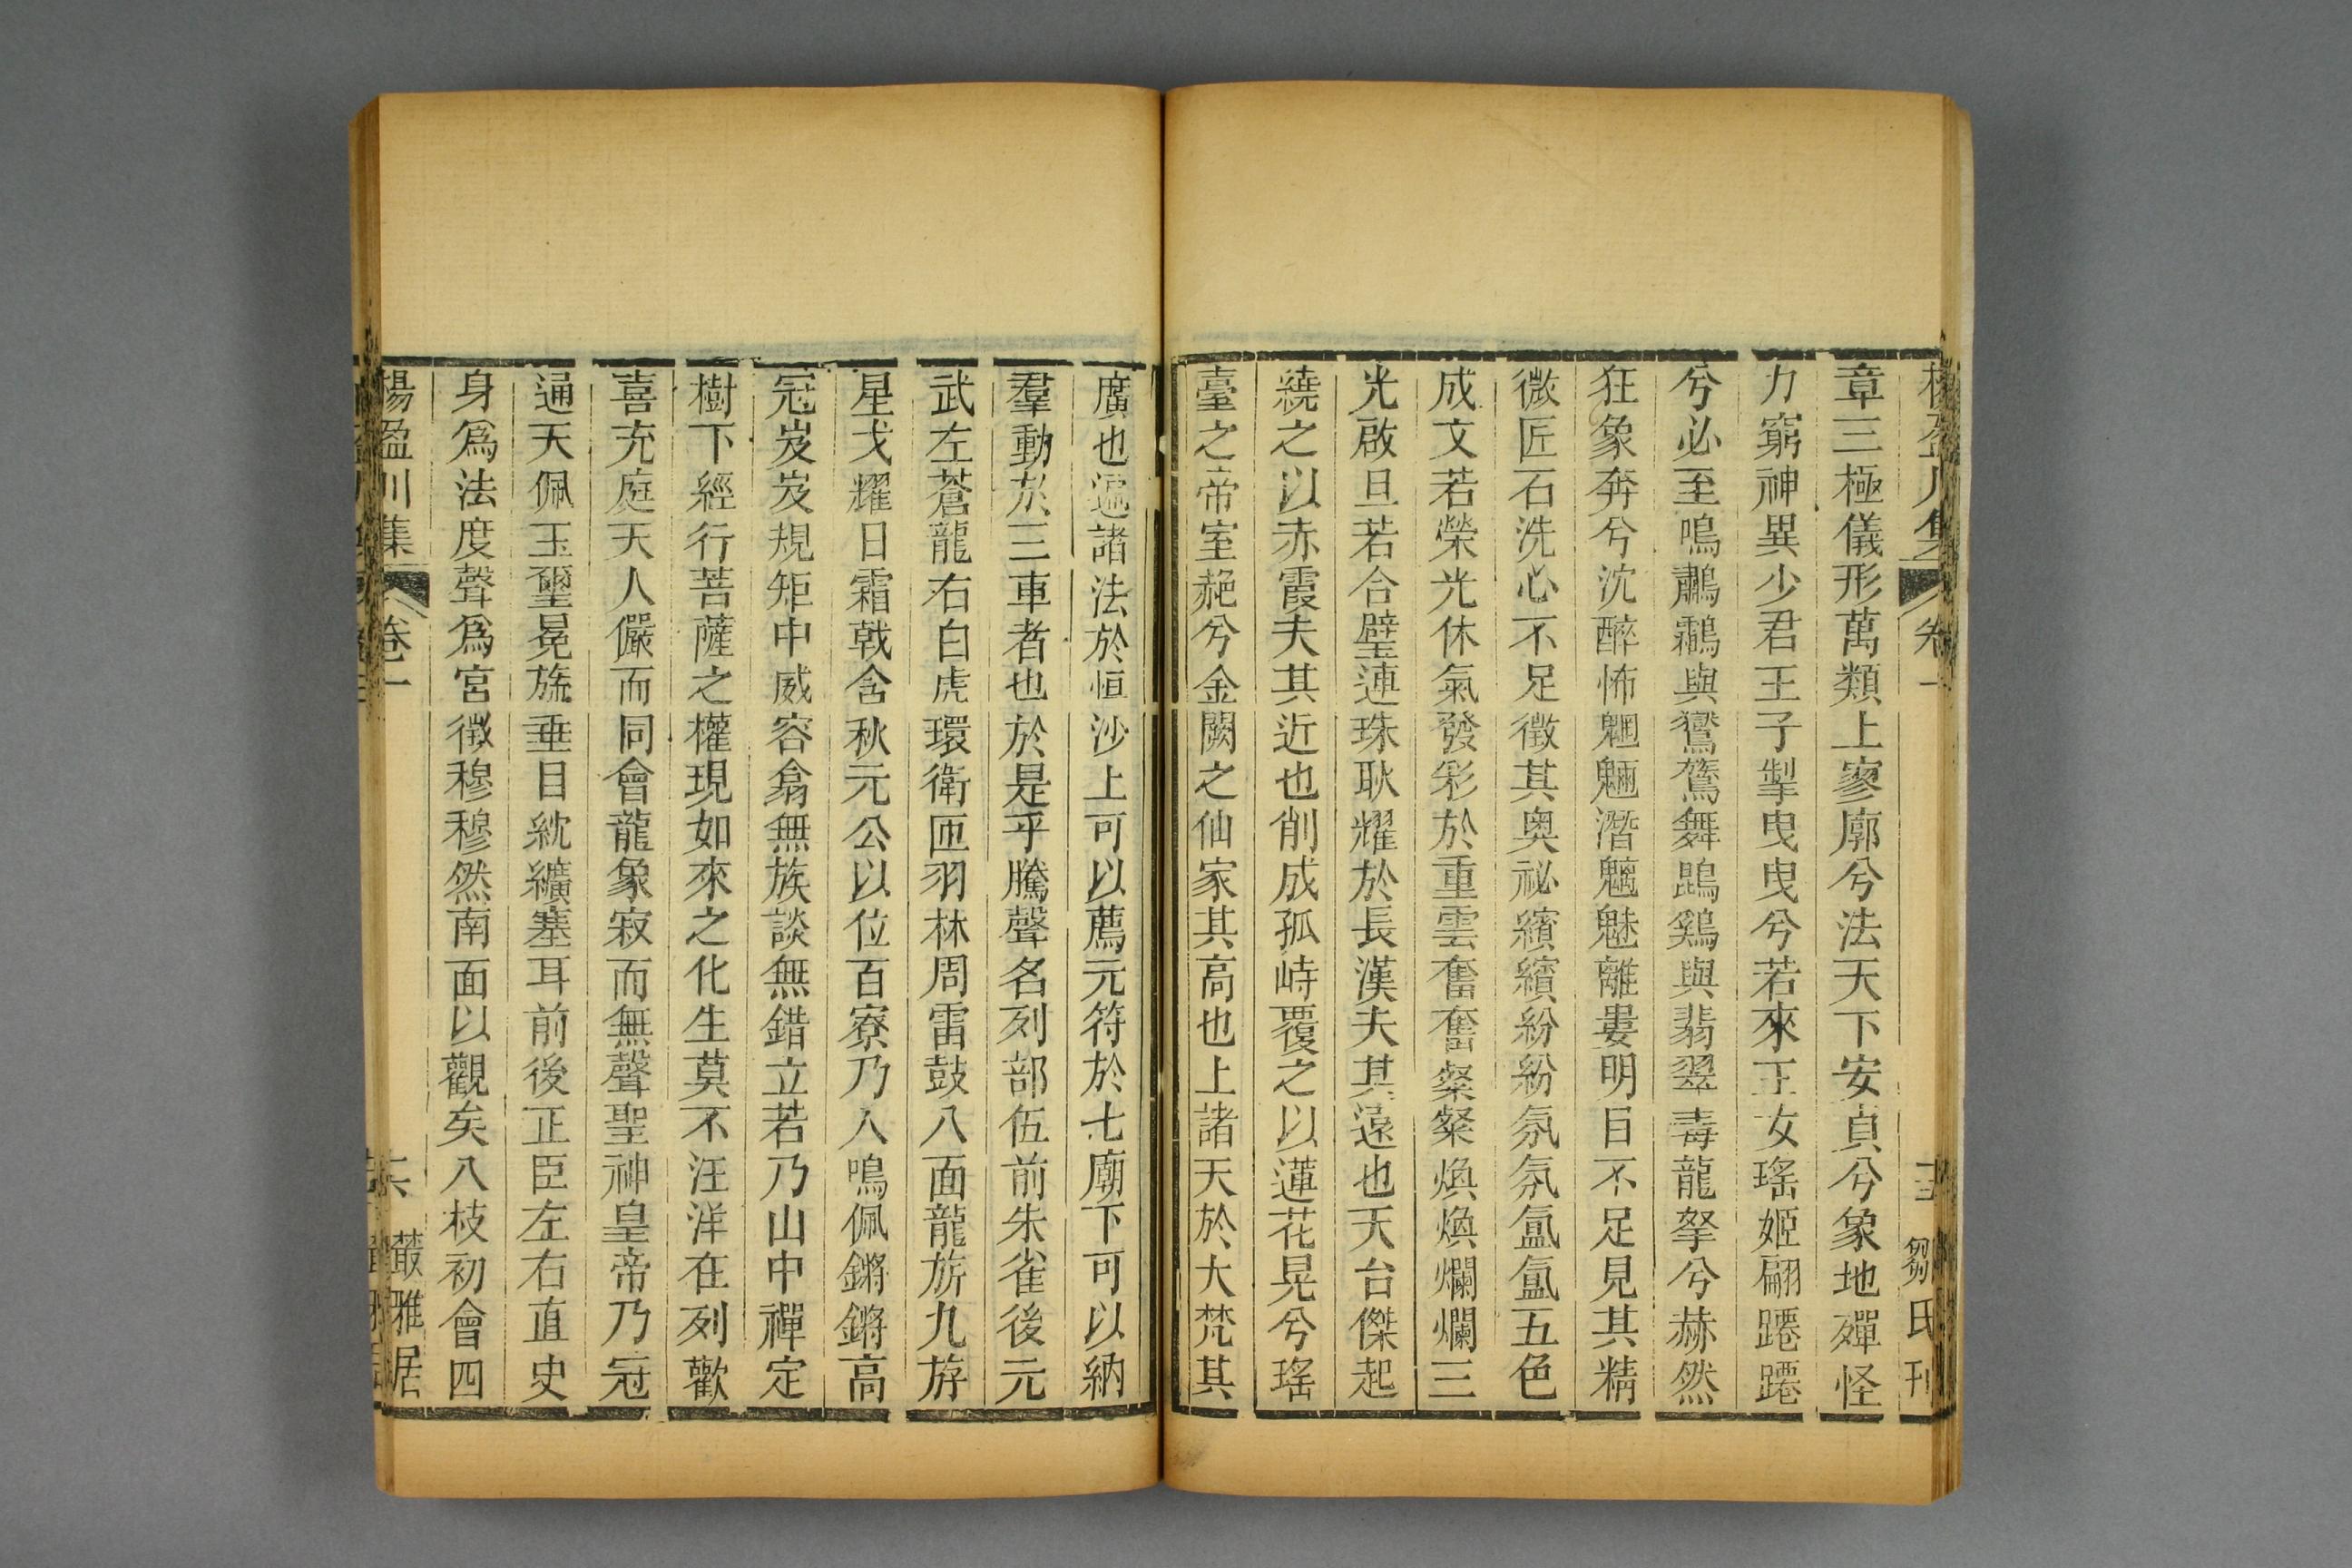 楊盈川集 卷一 十五 鄒氏刊
章三極儀形萬類上寥廓兮法天下安貞兮象地殫怪
力窮神異少君王子掣曳曳兮若來玉女瑤姬翩躚躚
兮必至鳴鷫鸘與鸑鷟舞鵾鷄與翡翠毒龍拏兮赫然
狂象奔兮沈醉怖魍魎潛魑魅離婁明目不足見其精
微匠石洗心不足徵其奧祕繽繽紛紛氛氛氳氳五色
成文若榮光休氣發彩於重雲奮奮粲粲煥煥爛爛三
光啟旦若合璧連珠耿耀於長漢夫其遠也天台傑起
繞之以赤霞夫其近也削成孤峙覆之以蓮花晃兮瑤
臺之帝室赩兮金闕之仙家其高也上諸天於大梵其
廣也遍諸法於恒沙上可以薦元符於七廟下可以納
羣動於三車者也於是乎騰聲名列部伍前朱雀後元
武左蒼龍右白虎環衛匝羽林周雷鼓八面龍旂九斿
星戈耀日霜戟含秋元公以位百寮乃入鳴佩鏘鏘高
冠岌岌規矩中威容翕無族談無錯立若乃山中禪定
樹下經行菩薩之權現如來之化生莫不汪洋在列歡
喜充庭天人儼而同會龍象寂而無聲聖神皇帝乃冠
通天佩玉璽冕旒垂目紞纊塞耳前後正臣左右直史
身爲法度聲爲宮徵穆穆然南面以觀矣八枝初會四
楊盈川集 卷一 十六 叢雅居